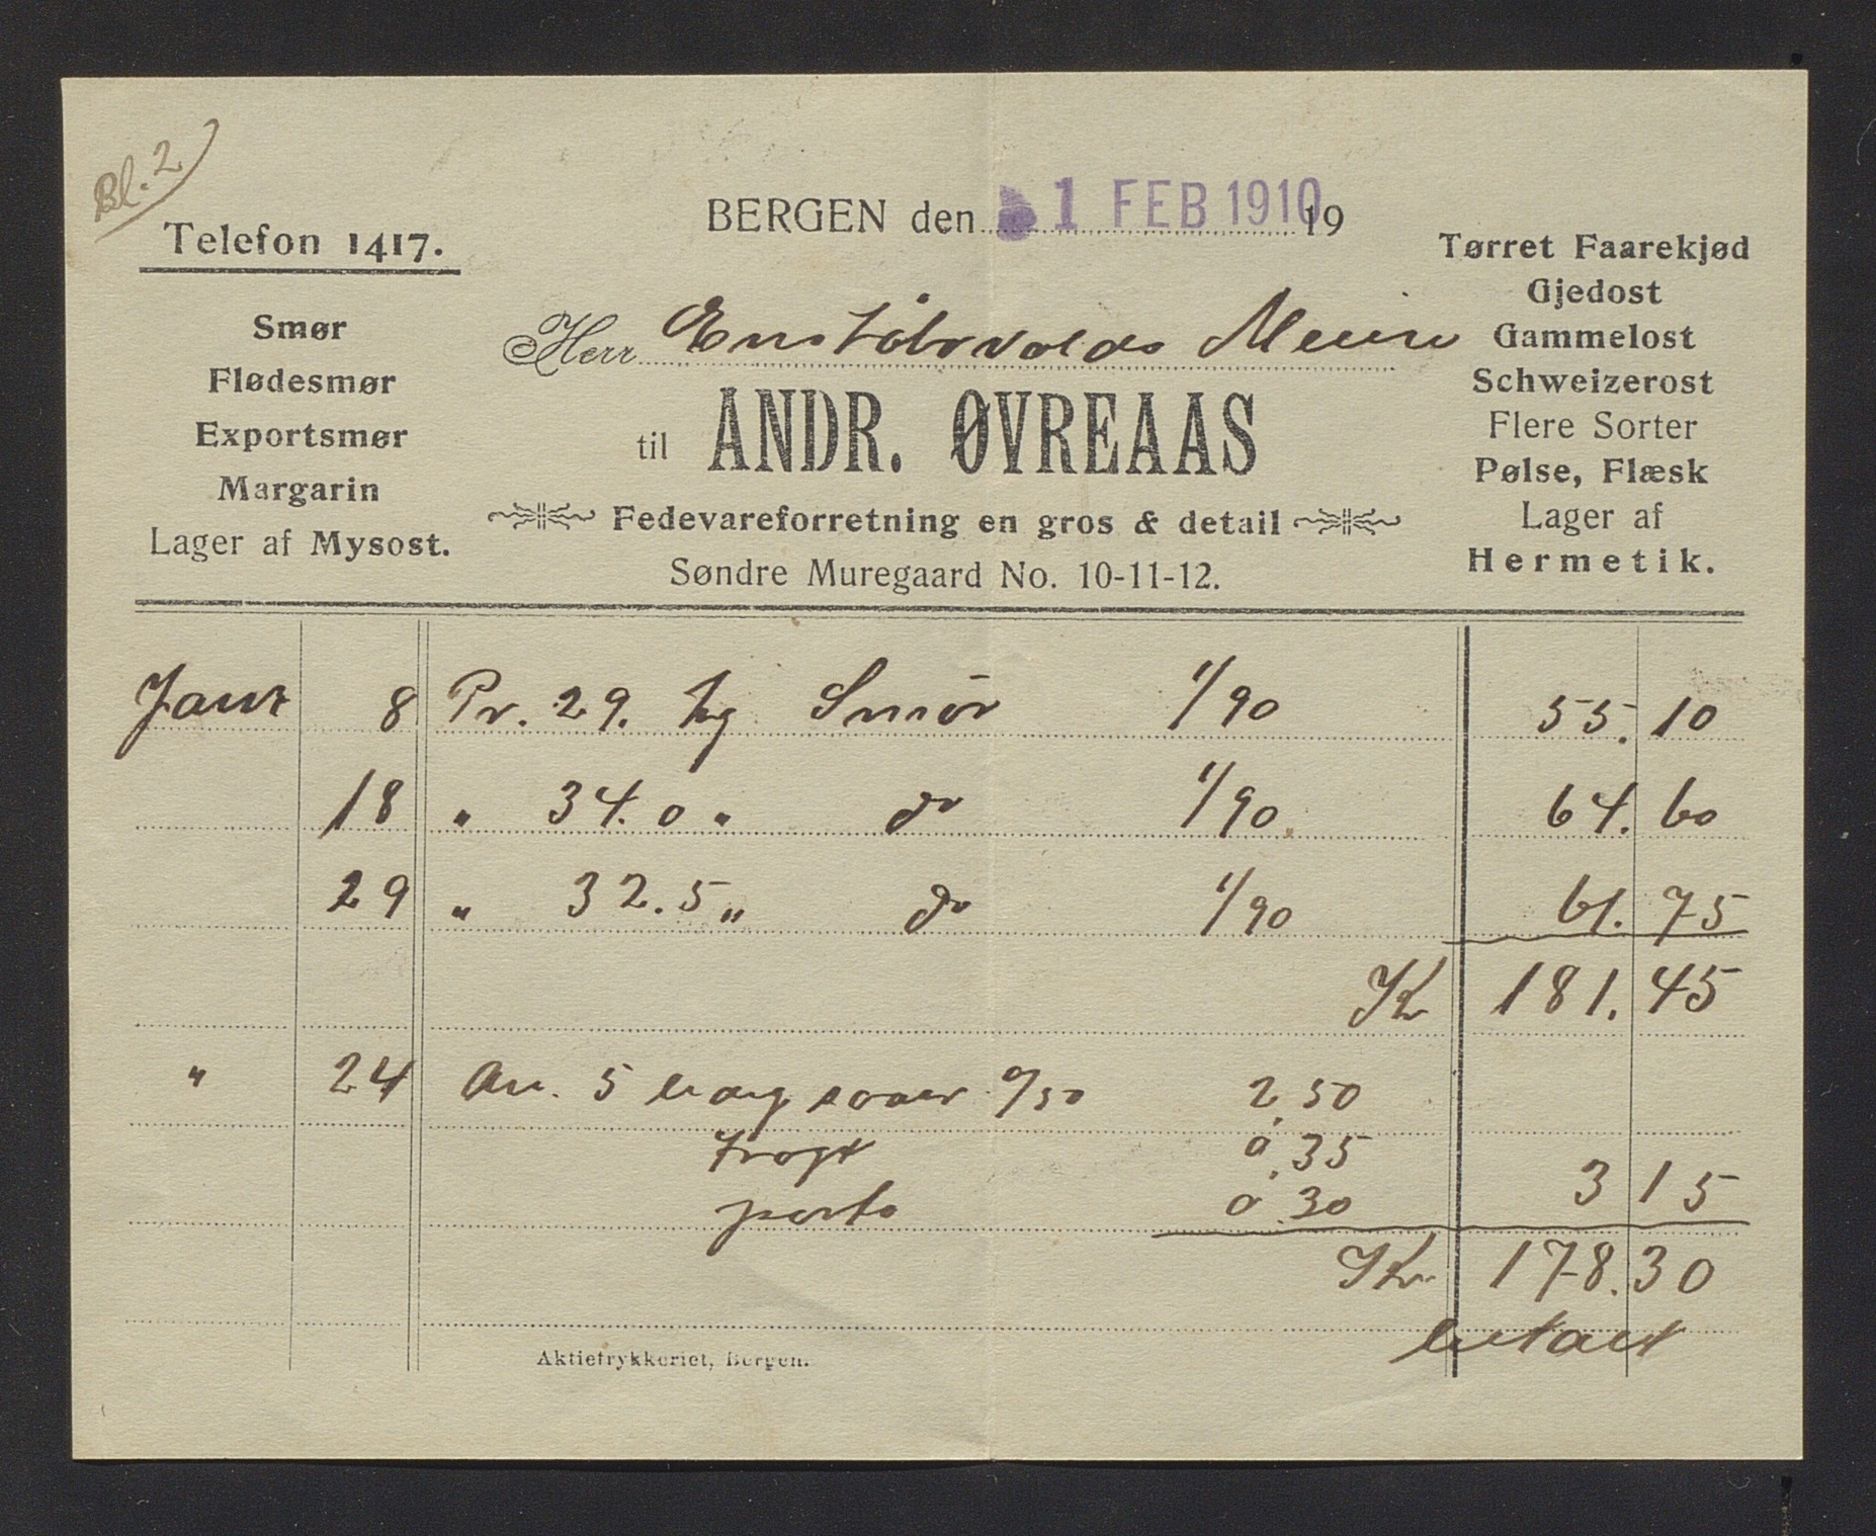 Bl. 2
BERGEN den 1 FEB 1910 19
Telefon 1417.
Smør
Flødesmør
Exportsmør
Margarin
Lager af Mysost.
Herr
til ANDR. ØVREAAS
Fedevareforretning en gros & detail
Søndre Muregaard No. 10-11-12.
Tørret Faarekjød
Gjedost
Gammelost
Schweizerost
Flere Sorter
Pølse, Flæsk
Lager af
Hermetik.
Janr 8 Pr. 29. kg Smör 1/90 55.10
18 " 34.0 " do 1/90 64.60
29 " 32.5 " do 1/90 61.75
Kr 181.45
" 24 An. 5 0/50 2,50
fragt 0,35
porto 0,30 3 15
Kr 178.30
betalt
Aktietrykkeriet, Bergen.